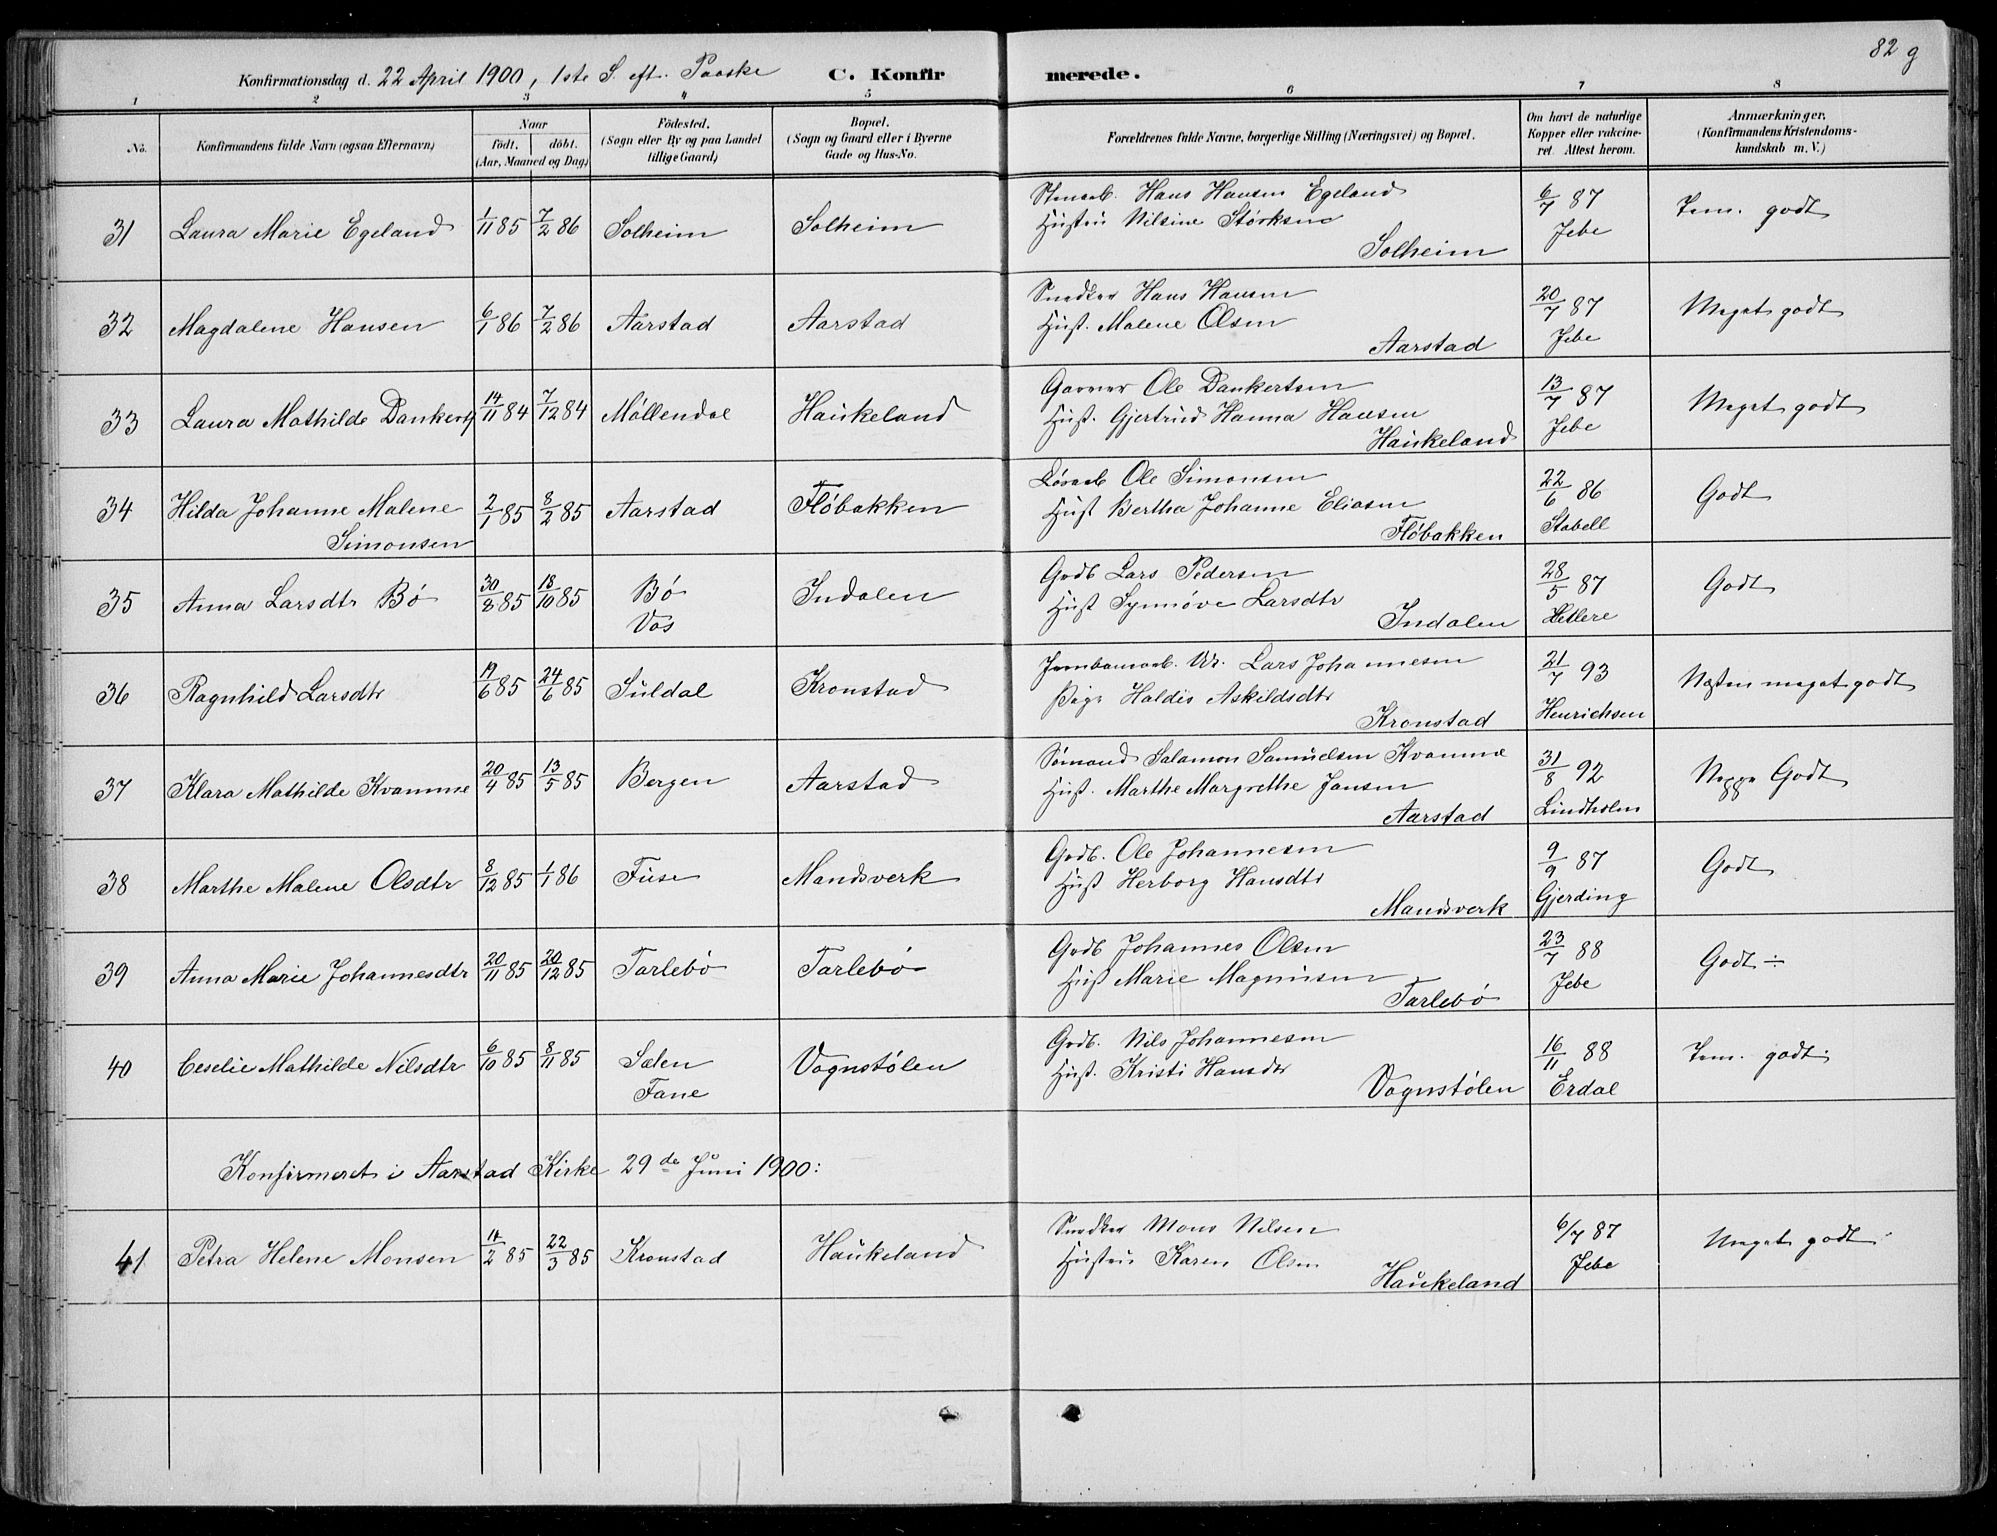 82 g
Konfirmationsdag d. 22 April 1900, 1ste S. eft. Paaske C. Konfirmerede.
1 2 3 4 5 6 7 8
No. Konfirmandens fulde Navn (ogsaa Efternavn) Naar født. døbt. (Aar, Maaned og Dag) Fødested. (Sogn eller By og paa Landet tillige Gaard) Bopæl. (Sogn og Gaard eller i Byerne Gade og Hus-No. Forældrenes fulde Navne, borgerlige Stilling (Næringsvei) og Bopæl. Om havt de naturlige Kopper eller vakcineret. Attest herom. Anmærkninger. (Konfirmandens Kristendomskundskab m. V.)
31 Laura Marie Egeland 1/11 85 7/2 86 Solheim Solheim Stenarb. Hans Hansen Egeland 6/7 87 Tem. godt
Hustru Nilsine Størksen Jebe
Solheim
32 Magdalene Hansen 6/1 86 7/2 86 Aarstad Aarstad Snedker Hans Hansen 20/7 87 Meget godt
Hust. Malene Olsen Jebe
Aarstad
33 Laura Mathilde Dankert 14/11 84 7/12 84 Møllendal Haukeland Garver Ole Dankertsen 13/7 87 Meget godt
Hust. Gjertrud Hanna Hansen Jebe
Haukeland
34 Hilda Johanne Malene 2/1 85 8/2 85 Aarstad Fløbakken Ole Simonsen 22/6 86 Godt
Simonsen Hust Bertha Johanne Eliasen Stabell
Fløbakken
35 Anna Larsdtr Bø 30/8 85 18/10 85 Bø Indalen Gadb Lars Pedersen 28/5 87 Godt
Vos Hust Synnøve Larsdtr Hetlere
Indalen
36 Ragnhild Larsdtr 19/6 85 24/6 85 Suldal Kronstad Jernbanearb. Ur. Lars Johannesen 21/7 93 Næsten meget godt
Pige Haldis Askildsdtr Henrichsen
Kronstad
37 Klara Mathilde Kvamme 20/4 85 13/5 85 Bergen Aarstad Sømand Salamon Samuelsen Kvamme 31/8 92 Neppe Godt
Hust. Marthe Margrethe Jansen Lindholm
Aarstad
38 Marthe Malene Olsdtr 8/12 85 1/1 86 Fuse Mandsverk Gadb. Ole Johannesen 9/9 87 Godt
Hust Herborg Hansdtr Gjerding
Mandsverk
39 Anna Marie Johannesdtr 20/11 85 20/12 85 Tarlebø Tarlebø Gadb Johannes Olsen 23/7 88 Godt ÷
Hust Marie Magnusen Jebe
Tarlebø
40 Ceselie Mathilde Nilsdtr 6/10 85 8/11 85 Sælen Vognstølen Gadb. Nils Johannesen 16/11 88 Tem. godt.
Fane Hust. Kristi Hansdtr Erdal
Vognstølen
Konfirmeret i Aarstad Kirke 29de Juni 1900:
41 Petra Helene Monsen 14/2 85 22/3 85 Kronstad Haukeland Snedker Mons Nilsen 6/7 87 Meget godt
Hustru Karen Olsen Jebe
Haukeland